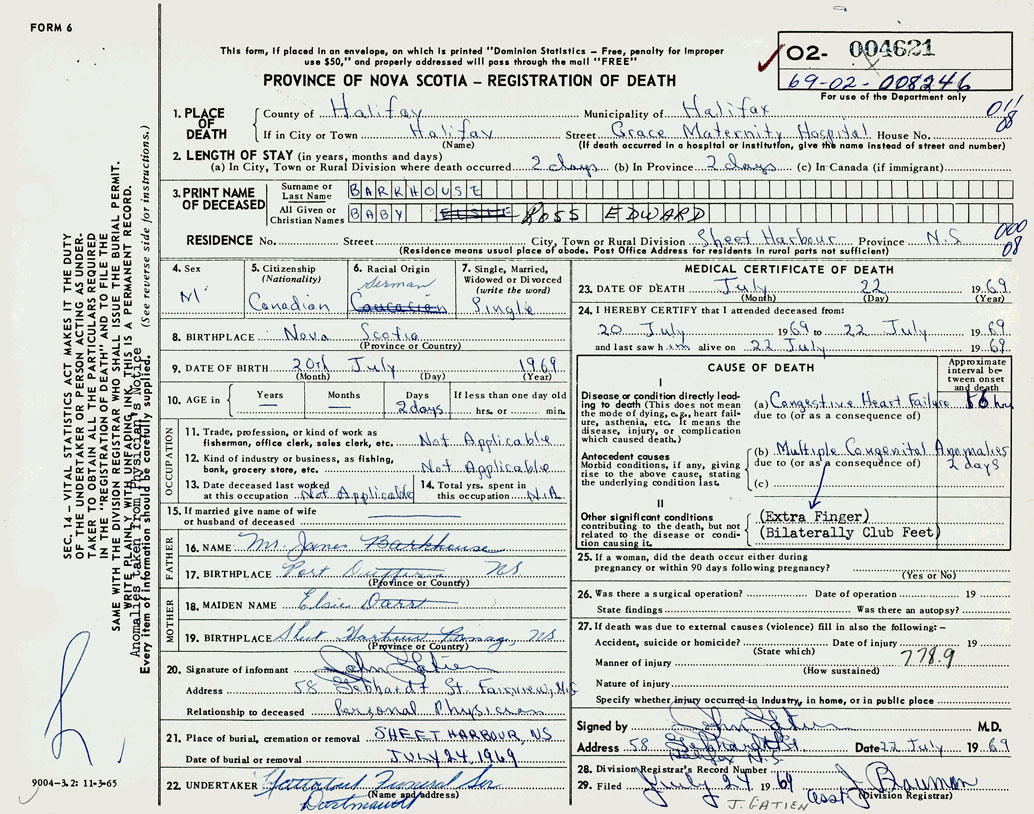 FORM 6
This form, if placed in an envelope, on which is printed "Dominion Statistics – Free, penalty for improper
use $50," and properly addressed will pass through the mail "FREE"
PROVINCE OF NOVA SCOTIA – REGISTRATION OF DEATH
O2- 004621
69-02-008246
For use of the Department only
1. PLACE OF DEATH
County of Halifax Municipality of Halifax 011
08
If in City or Town Halifax Street Grace Maternity Hospital House No.
(Name) (If death occurred in a hospital or institution, give the name instead of street and number)
2. LENGTH OF STAY (in years, months and days)
(a) In City, Town or Rural Division where death occurred 2 days (b) In Province 2 days (c) In Canada (if immigrant)
3. PRINT NAME OF DECEASED
Surname or Last Name BARKHOUSE
All Given or Christian Names BABY ELSIE ROSS EDWARD
RESIDENCE No. Street City, Town or Rural Division Sheet Harbour Province N.S. 000
08
(Residence means usual place of abode. Post Office Address for residents in rural parts not sufficient)
4. Sex
M
5. Citizenship
(Nationality)
Canadian
6. Racial Origin
German
Caucasian
7. Single, Married,
Widowed or Divorced
(write the word)
Single
8. BIRTHPLACE Nova Scotia
(Province or Country)
9. DATE OF BIRTH 20th July 1969
(Month) (Day) (Year)
10. AGE in Years Months Days 2 days If less than one day old
hrs. or min.
OCCUPATION
11. Trade, profession, or kind of work as
fisherman, office clerk, sales clerk, etc. Not Applicable
12. Kind of industry or business, as fishing,
bank, grocery store, etc. Not Applicable
13. Date deceased last worked
at this occupation Not Applicable
14. Total yrs. spent in
this occupation N.A.
15. If married give name of wife
or husband of deceased
FATHER
16. NAME Mr. James Barkhouse
17. BIRTHPLACE Port Dufferin NS
(Province or Country)
MOTHER
18. MAIDEN NAME Elsie Darr
19. BIRTHPLACE Sheet Harbour Passage, NS
(Province or Country)
20. Signature of informant John Gatien
Address 58 Gebhardt St. Fairview, N.S
Relationship to deceased Personal Physician
21. Place of burial, cremation or removal SHEET HARBOUR, NS
Date of burial or removal JULY 24, 1969
22. UNDERTAKER Funeral Ser
(Name and address)
Dartmouth
MEDICAL CERTIFICATE OF DEATH
23. DATE OF DEATH July 22 1969
(Month) (Day) (Year)
24. I HEREBY CERTIFY that I attended deceased from:
20 July 1969 to 22 July 1969
and last saw him alive on 22 July 1969
CAUSE OF DEATH
Approximate
interval be-
tween onset
and death
I
Disease or condition directly lead-
ing to death (This does not mean
the mode of dying, e.g., heart fail-
ure, asthenia, etc. It means the
disease, injury, or complication
which caused death.)
(a) Congestive Heart Failure 16 hrs
due to (or as a consequence of)
Antecedent causes
Morbid conditions, if any, giving
rise to the above cause, stating
the underlying condition last.
(b) Multiple Congenital Anomalies
due to (or as a consequence of) 2 days
(c)
II
Other significant conditions
contributing to the death, but not
related to the disease or condi-
tion causing it.
(Extra Finger)
(Bilaterally Club Feet)
25. If a woman, did the death occur either during
pregnancy or within 90 days following pregnancy?
(Yes or No)
26. Was there a surgical operation? Date of operation 19
State findings Was there an autopsy?
27. If death was due to external causes (violence) fill in also the following:–
Accident, suicide or homicide? Date of injury 19
(State which)
Manner of injury 778.9
(How sustained)
Nature of injury
Specify whether injury occurred in industry, in home, or in public place
Signed by John Gatien M.D.
Address 58 Gebhardt St Date 22 July 1969
Halifax N.S.
28. Division Registrar's Record Number
29. Filed July 29 1969 Asst J. Bauman
(Division Registrar)
J. GATIEN
SEC. 14 – VITAL STATISTICS ACT MAKES IT THE DUTY
OF THE UNDERTAKER OR PERSON ACTING AS UNDER-
TAKER TO OBTAIN ALL THE PARTICULARS REQUIRED
IN THE "REGISTRATION OF DEATH" AND TO FILE THE
SAME WITH THE DIVISION REGISTRAR WHO SHALL ISSUE THE BURIAL PERMIT.
WRITE PLAINLY WITH UNFADING INK. THIS IS A PERMANENT RECORD.
Anomalies taken from Physicians Notice
Every item of information should be carefully supplied. (See reverse side for instructions.)
9004–3.2: 11-3-65